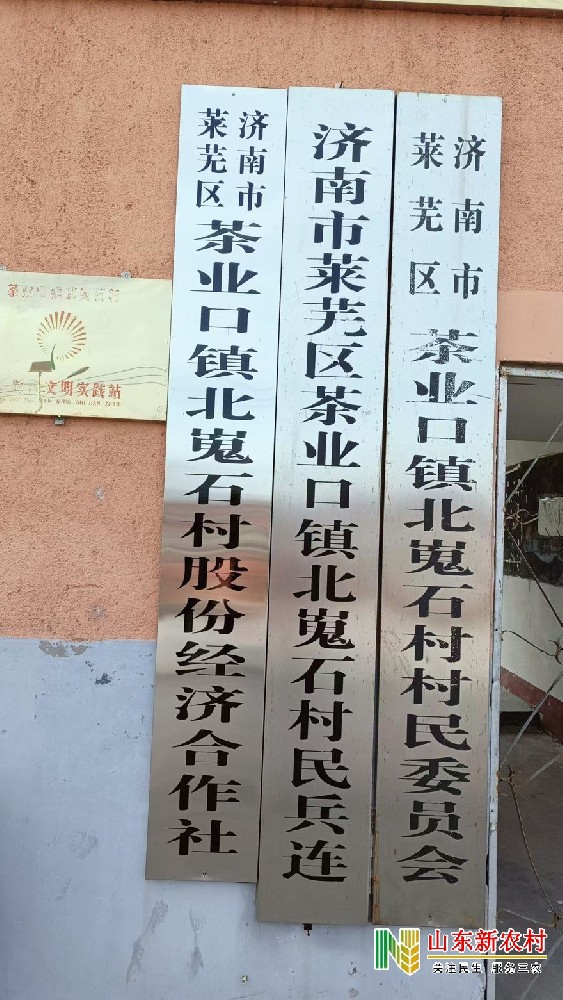 济南市
莱芜区
茶业口镇北嵬石村村民委员会
济南市莱芜区茶业口镇北嵬石村民兵连
济南市
莱芜区
茶业口镇北嵬石村股份经济合作社
文明实践站
山东新农村
关注民生 服务三农